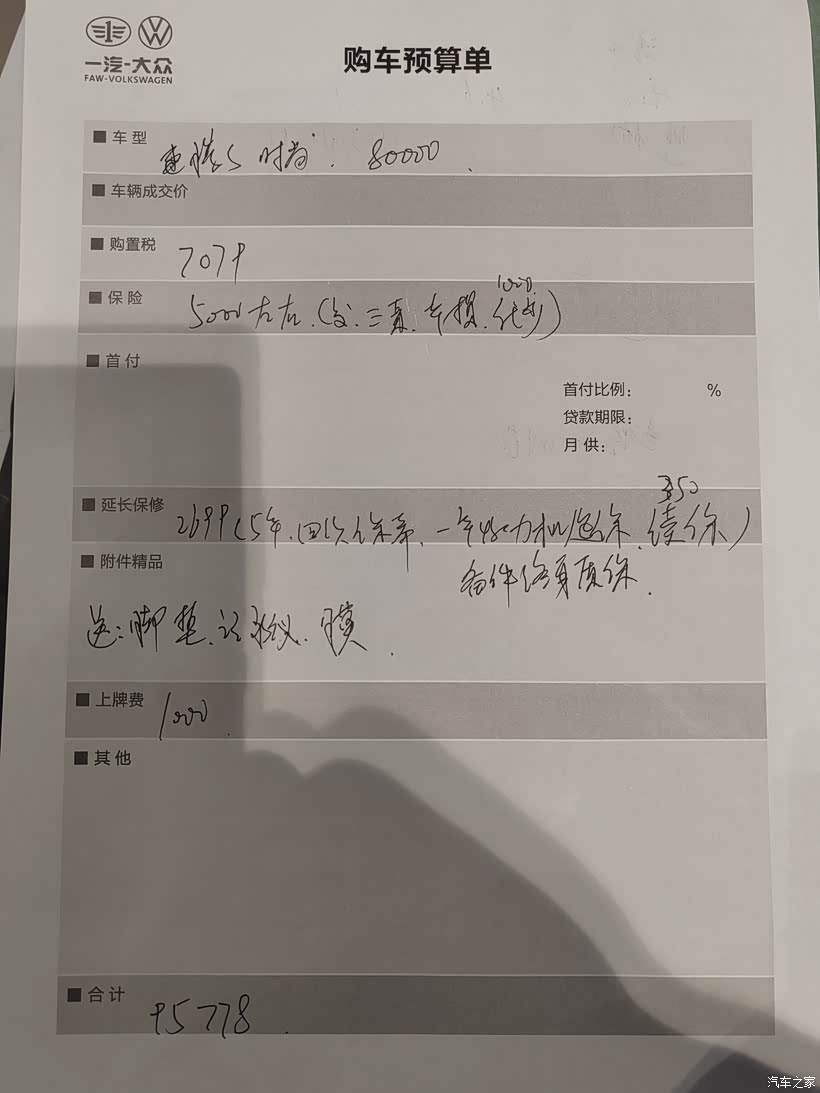 一汽-大众
FAW-VOLKSWAGEN
购车预算单
■ 车型
速腾S 时尚. 80000.
■ 车辆成交价
■ 购置税
7079
■ 保险
1000
5000左右.(交.三责.车损.
■ 首付
首付比例: %
贷款期限:
月供:
350
■ 延长保修
2699(5年.四次保养.一年 续保)
■ 附件精品
备件终身质保.
送:脚垫.记录仪.膜.
■ 上牌费
1000.
■ 其他
■ 合计
95778.
汽车之家